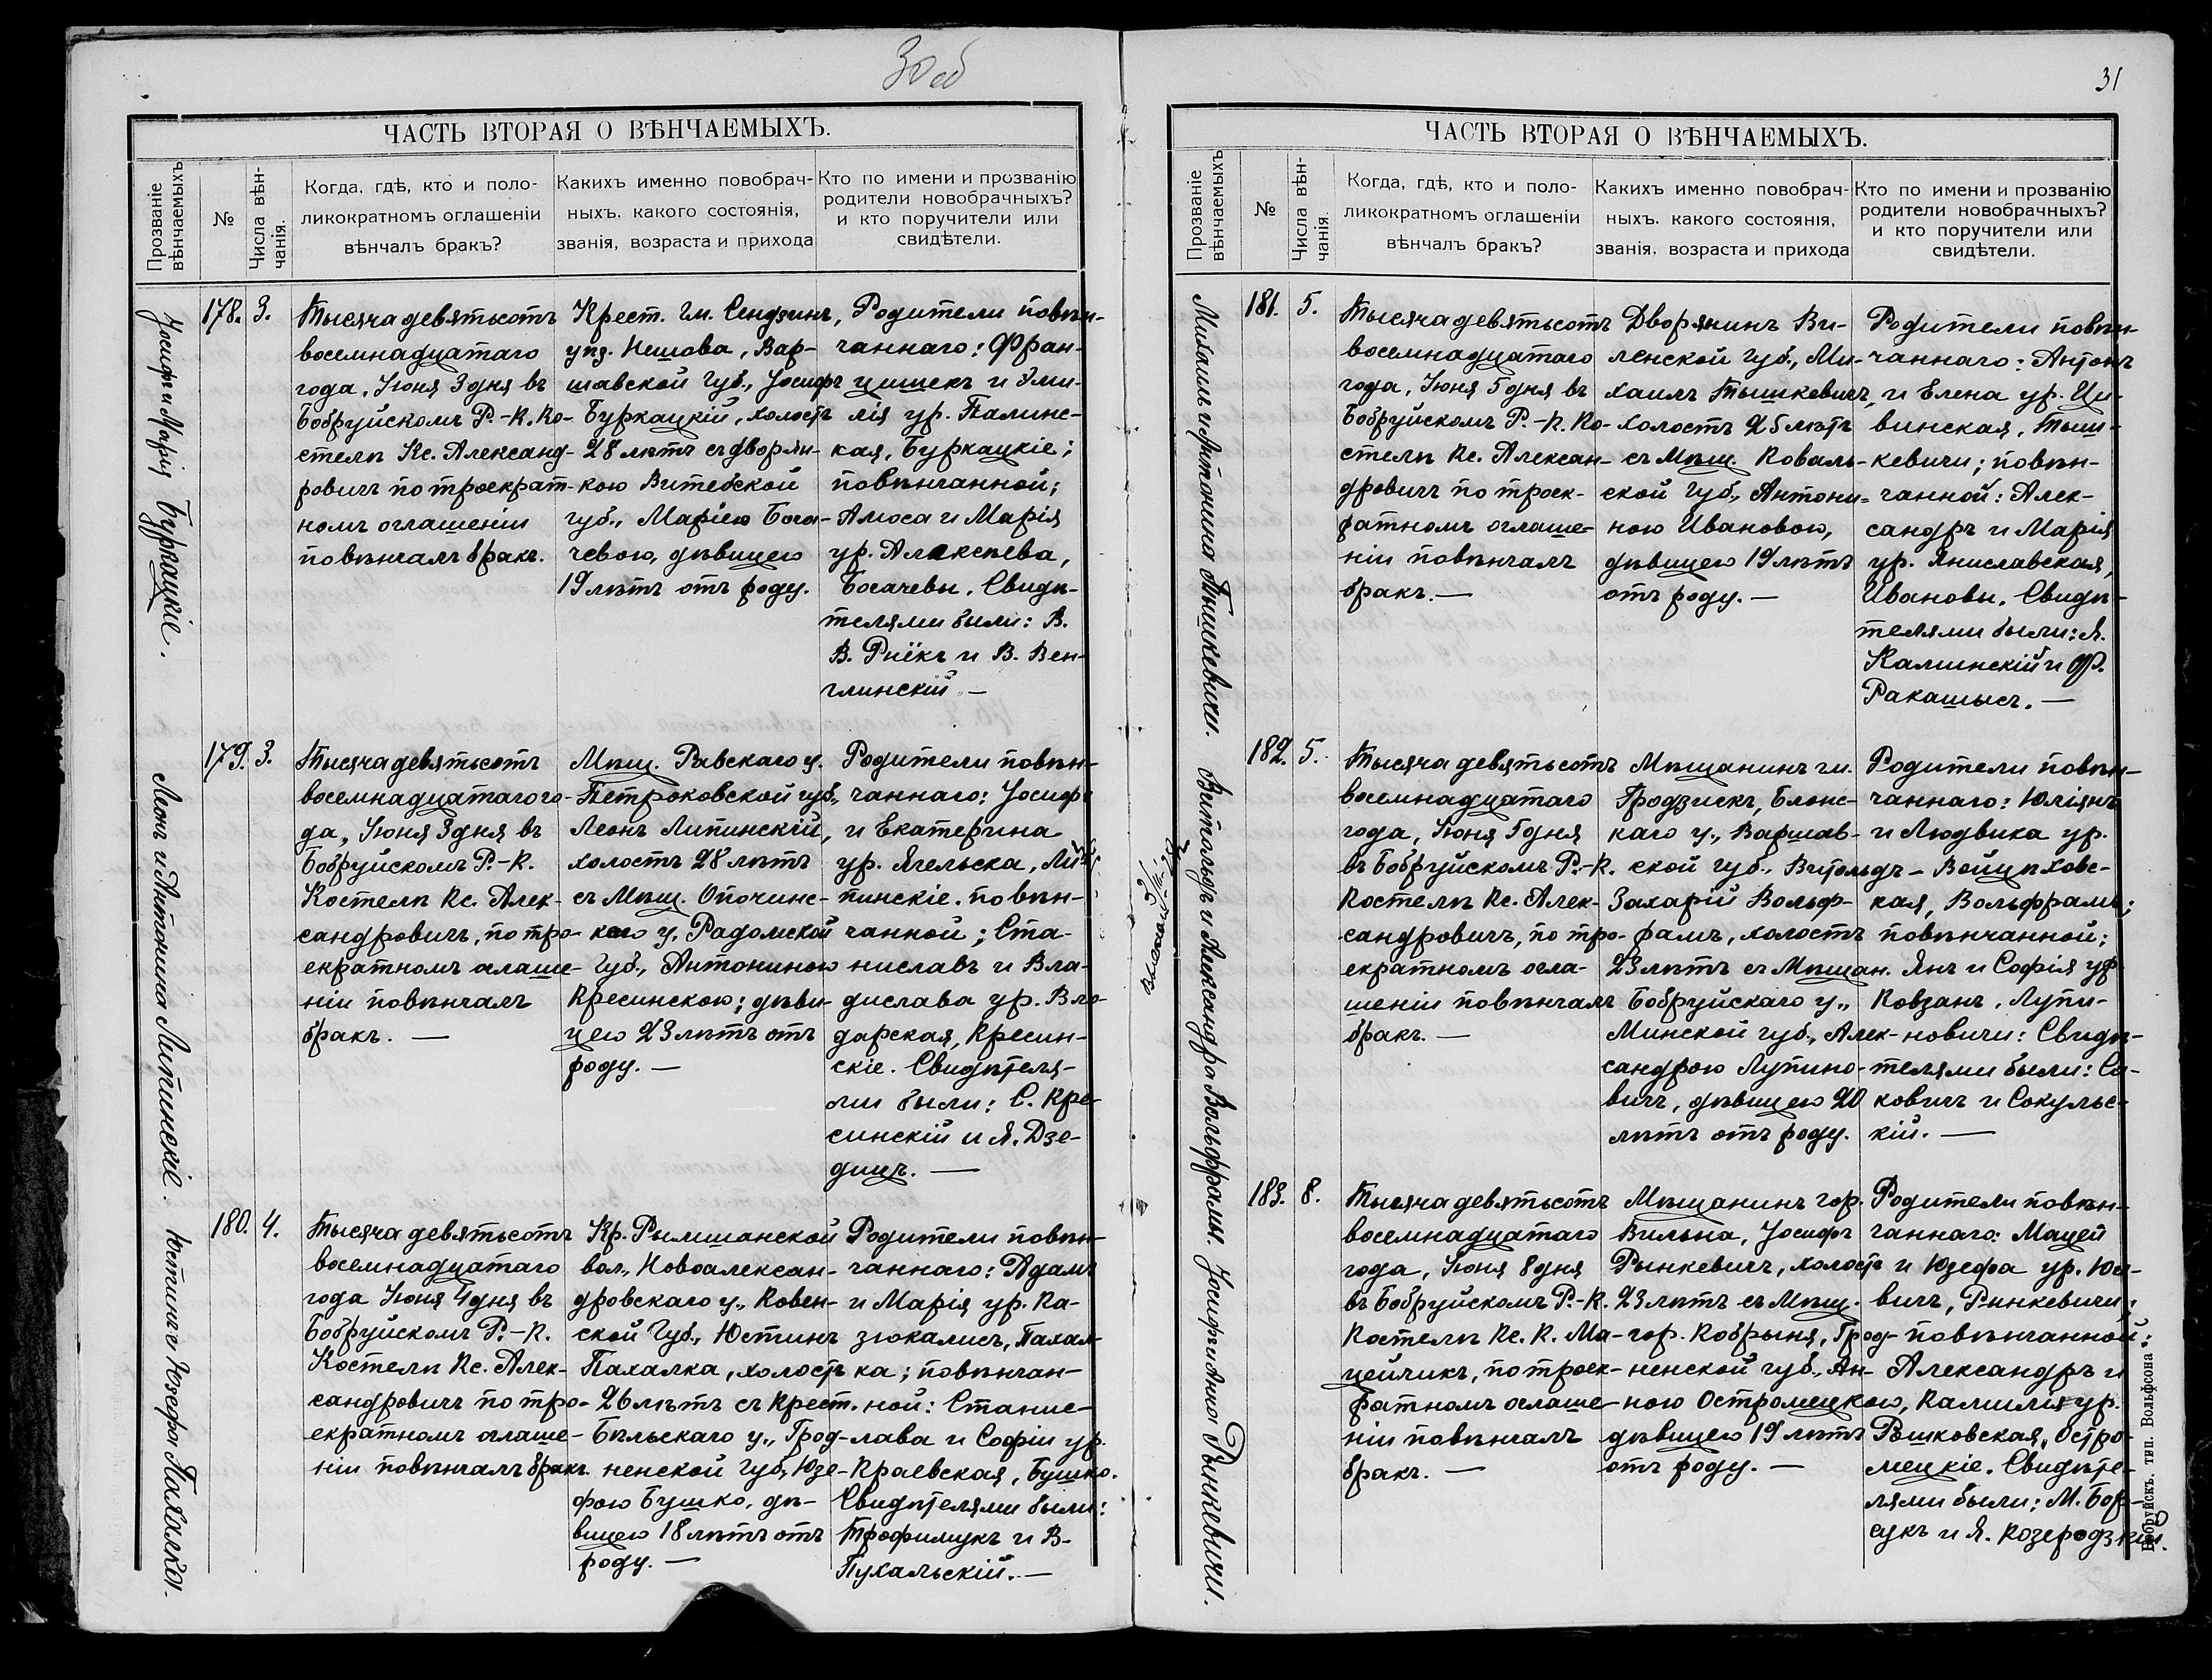 30 об
ЧАСТЬ ВТОРАЯ О ВѢНЧАЕМЫХЪ.
Прозваніе
вѣнчаемыхъ
№
Числа вѣн-
чанія.
Когда, гдѣ, кто и поло-
ликократномъ оглашеніи
вѣнчалъ бракъ?
Какихъ именно повобрач-
ныхъ, какого состоянія,
званія, возраста и прихода
Кто по имени и прозванію
родители новобрачныхъ?
и кто поручители или
свидѣтели.
Іосифъ и Марія Буркацкіе.
178.
3.
Тысяча девятьсотъ
восемнадцатаго
года, Іюня 3 дня въ
Бобруйскомъ Р.-К. Ко-
стелѣ Кс. Александ-
ровичъ по троекрат-
номъ оглашеніи
повѣнчалъ бракъ.
Крест. гм. Сендзинъ,
уѣз. Нешава, Вар-
шавской Губ., Іосифъ
Буркацкій, холостъ
28 лѣтъ съ дворян-
кою Витебской
губ., Маріею Бога-
чевою, дѣвицею
19 лѣтъ отъ роду.
Родители повѣн-
чаннаго: Фран-
цишекъ и Эми-
лія ур. Палинс-
кая, Буркацкіе;
повѣнчанной;
Амоса и Марія
ур. Алексѣева,
Богачевы. Свидѣ-
телями были: В.
В. Рнёкъ и В. Вен-
глинскій. —
Леонъ и Антонина Липинскіе.
179.
3.
Тысяча девятьсотъ
восемнадцатаго го-
да, Іюня 3 дня въ
Бобруйскомъ Р.-К.
Костелѣ Кс. Алек-
сандровичъ, по тро-
екратномъ оглаше-
ніи повѣнчалъ
бракъ. —
Мѣщ. Равскаго у.
Петроковской губ.,
Леонъ Липинскій,
холостъ 28 лѣтъ
съ Мѣщ. Опочинс-
каго у. Радомской
Губ., Антониною
Кресинскою; дѣви-
цею 23 лѣтъ отъ
роду. —
Родители повѣн-
чаннаго: Іосифъ
и Екатерина
ур. Ягельска, Ли-
пинскіе. повѣн-
чанной; Ста-
ниславъ и Вла-
дислава ур. Вло-
дарская, Кресин-
скіе. Свидѣтеля-
ми были: С. Кре-
синскій и Я. Дзе-
дицъ. —
Юстинъ и Юзефа Пахалка.
180.
4.
Тысяча девятьсотъ
восемнадцатаго
года Іюня 4 дня въ
Бобруйскомъ Р.-К.
Костелѣ Кс. Алек-
сандровичъ по тро-
екратномъ оглаше-
ніи повѣнчалъ бракъ.
Кр. Рымшанской
вол., Новоалексан-
дровскаго у., Ковен-
ской Губ., Юстинъ
Пахалка, холостъ
26 лѣтъ съ Крест.
Бѣльскаго у., Грод-
ненской Губ, Юзе-
фою Бушко, дѣ-
вицею 18 лѣтъ отъ
роду. —
Родители повѣн-
чаннаго: Адамъ
и Марія ур. Ка-
зюкалисъ, Пахал-
ка; повѣнчан-
ной: Станис-
лава и Софіи ур.
Краевская, Бушко.
Свидѣтелями были:
Трофимукъ и В.
Пухальскій. —
31
ЧАСТЬ ВТОРАЯ О ВѢНЧАЕМЫХЪ.
Прозваніе
вѣнчаемыхъ
№
Числа вѣн-
чанія.
Когда, гдѣ, кто и поло-
ликократномъ оглашеніи
вѣнчалъ бракъ?
Какихъ именно повобрач-
ныхъ, какого состоянія,
званія, возраста и прихода
Кто по имени и прозванію
родители новобрачныхъ?
и кто поручители или
свидѣтели.
Михаилъ и Антонина Тышкевичи.
181.
5.
Тысяча девятьсотъ
восемнадцатаго
года, Іюня 5 дня въ
Бобруйскомъ Р.-К. Ко-
стелѣ Кс. Алексан-
дровичъ по троек-
ратномъ оглаше-
ніи повѣнчалъ
бракъ. —
Дворянинъ Ви-
ленской Губ., Ми-
хаилъ Тышкевичъ,
холостъ 25 лѣтъ
съ Мѣщ. Коваль-
ской Губ., Антони-
ною Ивановою,
дѣвицею 19 лѣтъ
отъ роду. —
Родители повѣн-
чаннаго: Антонъ
и Елена ур. Ци-
винская, Тыш-
кевичи; повѣн-
чанной: Алек-
сандръ и Марія
ур. Яниславская,
Ивановы. Свидѣ-
телями были: Я.
Калинскій и Ф.
Ракашысъ. —
Витольдъ и Александра Вольффрамы.
182.
5.
Тысяча девятьсотъ
восемнадцатаго
года, Іюня 5 дня
въ Бобруйскомъ Р.-К.
Костелѣ Кс. Алек-
сандровичъ, по тро-
екратномъ огла-
шеніи повѣнчалъ
бракъ. —
Мѣщанинъ гм.
Гродзискъ, Блонс-
каго у., Варшав-
ской губ., Витольдъ-
Захарій Вольф-
рамъ, холостъ
23 лѣтъ съ Мѣщан.
Бобруйскаго у.,
Минской губ., Алек-
сандрою Лупино-
вичъ, дѣвицею 20
лѣтъ отъ роду.
Родители повѣн-
чаннаго: Юліянъ
и Людвика ур.
Войцѣховс-
кая, Вольффрамъ;
повѣнчанной;
Янъ и Софія ур.
Ковзанъ, Лупи-
новичи: Свидѣ-
телями были: Са-
ковичъ и Сокульс-
кій. —
Іосифъ и Анна Рынкевичи.
183.
8.
Тысяча девятьсотъ
восемнадцатаго
года, Іюня 8 дня
въ Бобруйскомъ Р.-К.
Костелѣ Кс. К. Ма-
цейчикъ, по троек-
ратномъ оглаше-
ніи повѣнчалъ
бракъ. —
Мѣщанинъ гор.
Вильна, Іосифъ
Рынкевичъ, холостъ
23 лѣтъ съ Мѣщ.
гор. Кобрыня, Грод-
ненской губ., Ан-
ною Остромецкою,
дѣвицею 19 лѣтъ
отъ роду. —
Родители повѣн-
чаннаго: Мацей
и Юзефа ур. Юе-
вичъ, Рынкевичи;
повѣнчанной:
Александръ и
Камилія ур.
Рышковская, Остро-
мецкіе. Свидѣте-
лями были: М. Бор-
сукъ и Я. Козеродзкій.
Бобруйскъ. тип. Вольфсона